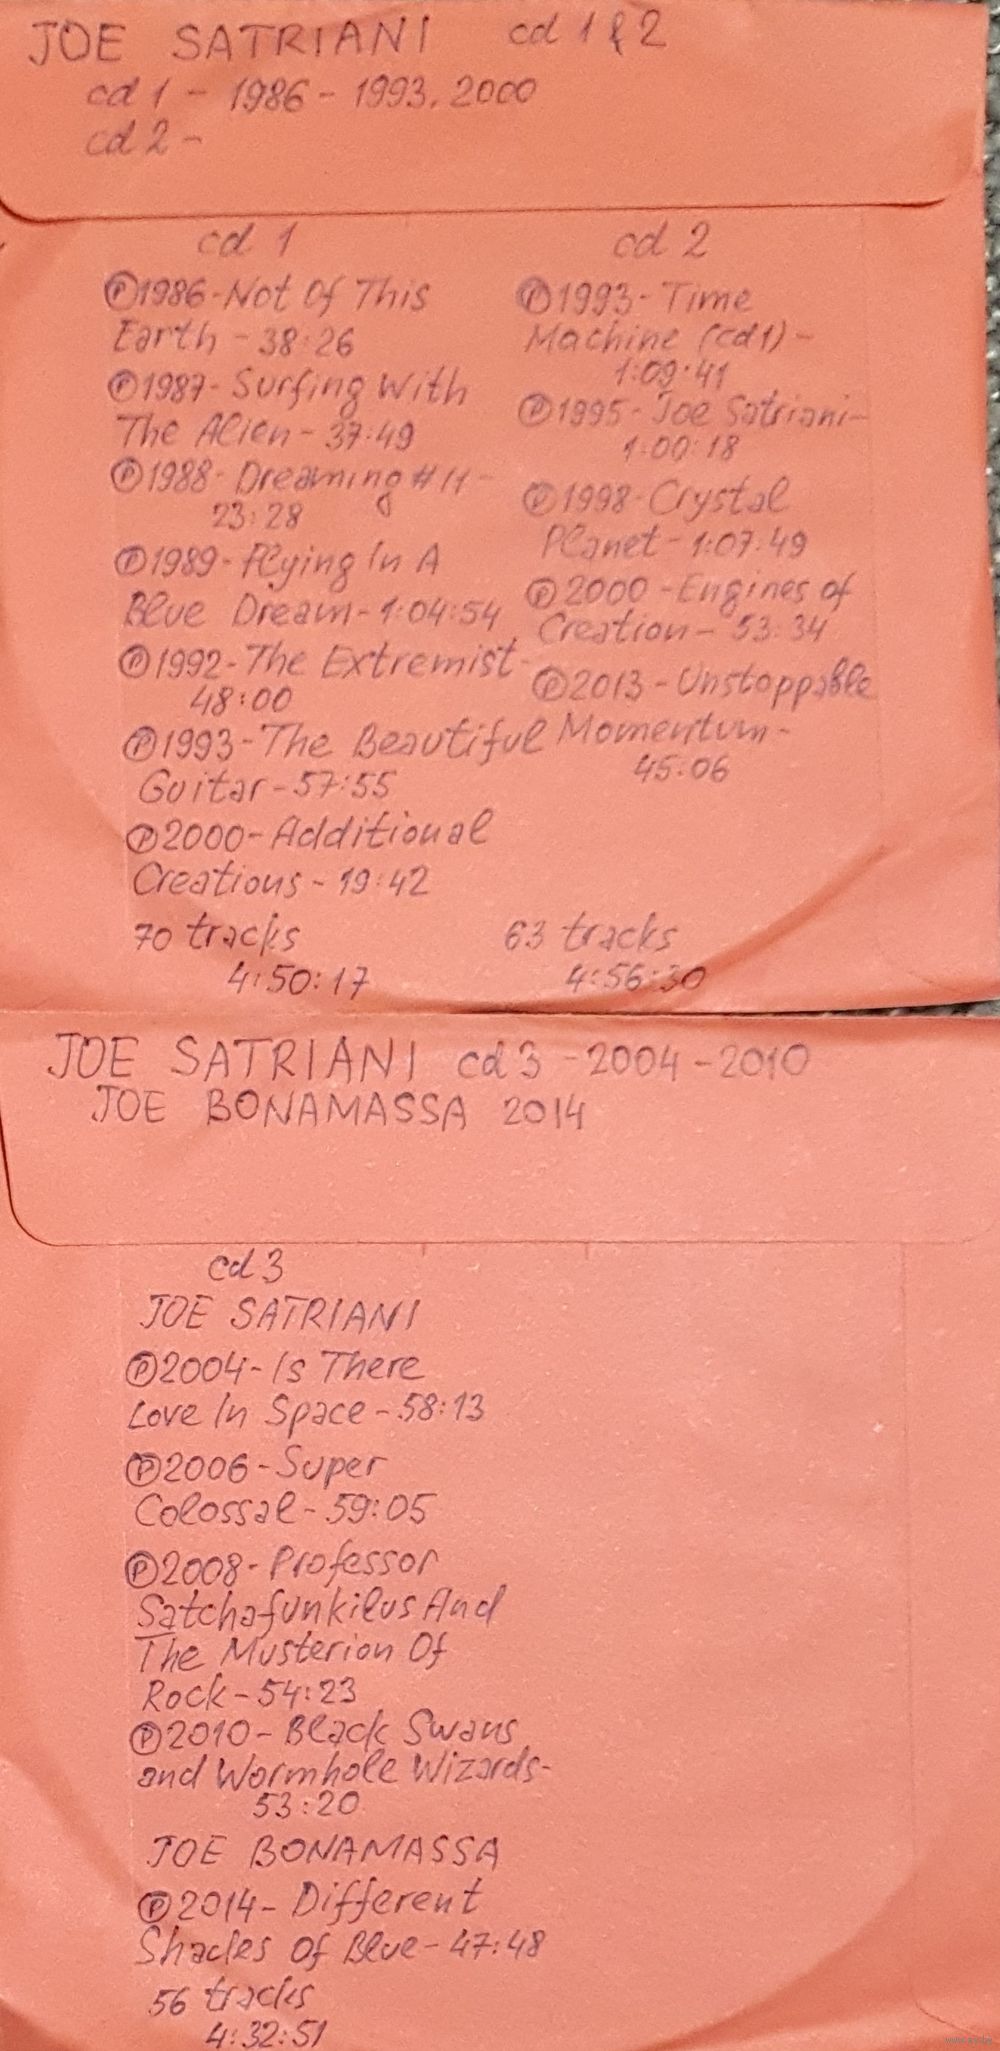 JOE SATRIANI cd 1 & 2
cd 1 - 1986 - 1993, 2000
cd 2 -
cd 1
Ⓟ1986-Not Of This
Earth - 38:26
Ⓟ1987-Surfing With
The Alien - 37:49
Ⓟ1988-Dreaming #11 -
23:28
Ⓟ1989-Flying In A
Blue Dream-1:04:54
Ⓟ1992-The Extremist-
48:00
Ⓟ1993-The Beautiful
Guitar-57:55
Ⓟ2000-Additional
Creations-19:42
70 tracks
4:50:17
cd 2
Ⓟ1993-Time
Machine (cd1)-
1:09:41
Ⓟ1995-Joe Satriani-
1:00:18
Ⓟ1998-Crystal
Planet-1:07:49
Ⓟ2000-Engines of
Creation-53:34
Ⓟ2013-Unstoppable
Momentum-
45:06
63 tracks
4:56:30
JOE SATRIANI cd 3 -2004-2010
JOE BONAMASSA 2014
cd 3
JOE SATRIANI
Ⓟ2004-Is There
Love In Space-58:13
Ⓟ2006-Super
Colossal-59:05
Ⓟ2008-Professor
Satchafunkilus And
The Musterion Of
Rock-54:23
Ⓟ2010-Black Swans
and Wormhole Wizards-
53:20
JOE BONAMASSA
Ⓟ2014-Different
Shades Of Blue-47:48
56 tracks
4:32:51